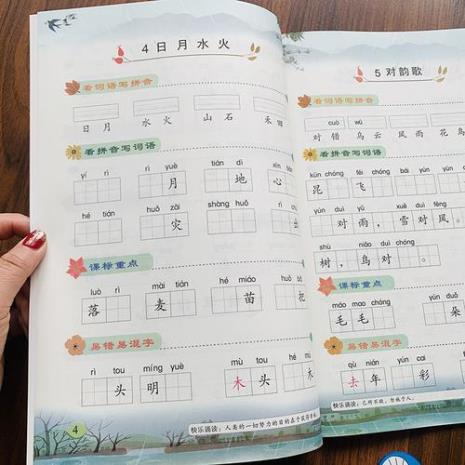 4 日 月 水 火
看词语写拼音
日 月 水 火 山 石 禾
看拼音写词语
yí rì rì yuè tián dì xīn
月 地 心
hé tián huǒ zāi shàng huǒ
灾
课标重点
luò rì mài tián hé miáo huā
落 麦 苗 花
易错易混字
rì tou míng yuè mù tou
头 明 木 头
快乐诵读：人类的一切努力的目的在于获得幸福
4
5 对 韵 歌
看词语写拼音
cuò wū
对 错 乌 云 风 雨 花 鸟
看拼音写词语
kūn chóng fēi chóng yún yún yǔ
昆 飞
yún duì yǔ xuě duì fēng
对 雨， 雪 对 风 。
shù niǎo duì chóng
树 ， 鸟 对 。
课标重点
máo mao chóng yún duǒ
毛 毛 朵
易错易混字
qù nián yún cai
去 年 彩
快乐诵读：己所不欲，勿施于人。